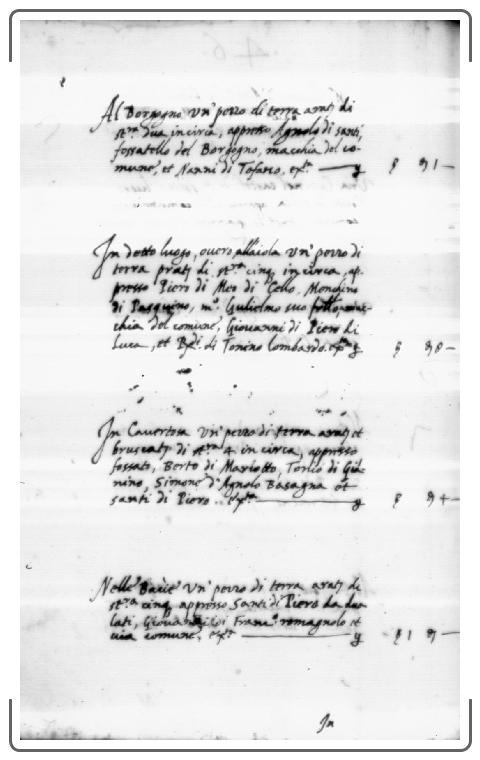 Al Borgogno un' pezzo di terra arat: di
st.ra dua in circa, appresso Agnolo di santi,
fossatello del Borgogno, macchia del co-
mune, et Nanni di Tofano, etc.
In detto luogo, overo all'aiola un' pezzo di
terra prat: di st.ra cinq in circa, ap-
presso Piero di Meo di Cello, Monsino
di Pasquino, m.o Gulielmo suo
chia del comune, Giovanni di Piero di
Luca, et di Tonino lombardo. etc.
In Cavertosa un' pezzo di terra arat: et
bruscat: di st.ra 4 in circa, appresso
fossato, Berto di Mariotto, Tonio di Gia-
nino, Simone d'Agnolo Basagna et
santi di Piero. etc.
Nelle un' pezzo di terra arat: di
st.ra cinq, appresso Santi di Piero da dua
lati, Giovanni di Franc.o romagnolo et
via comune, etc.
In